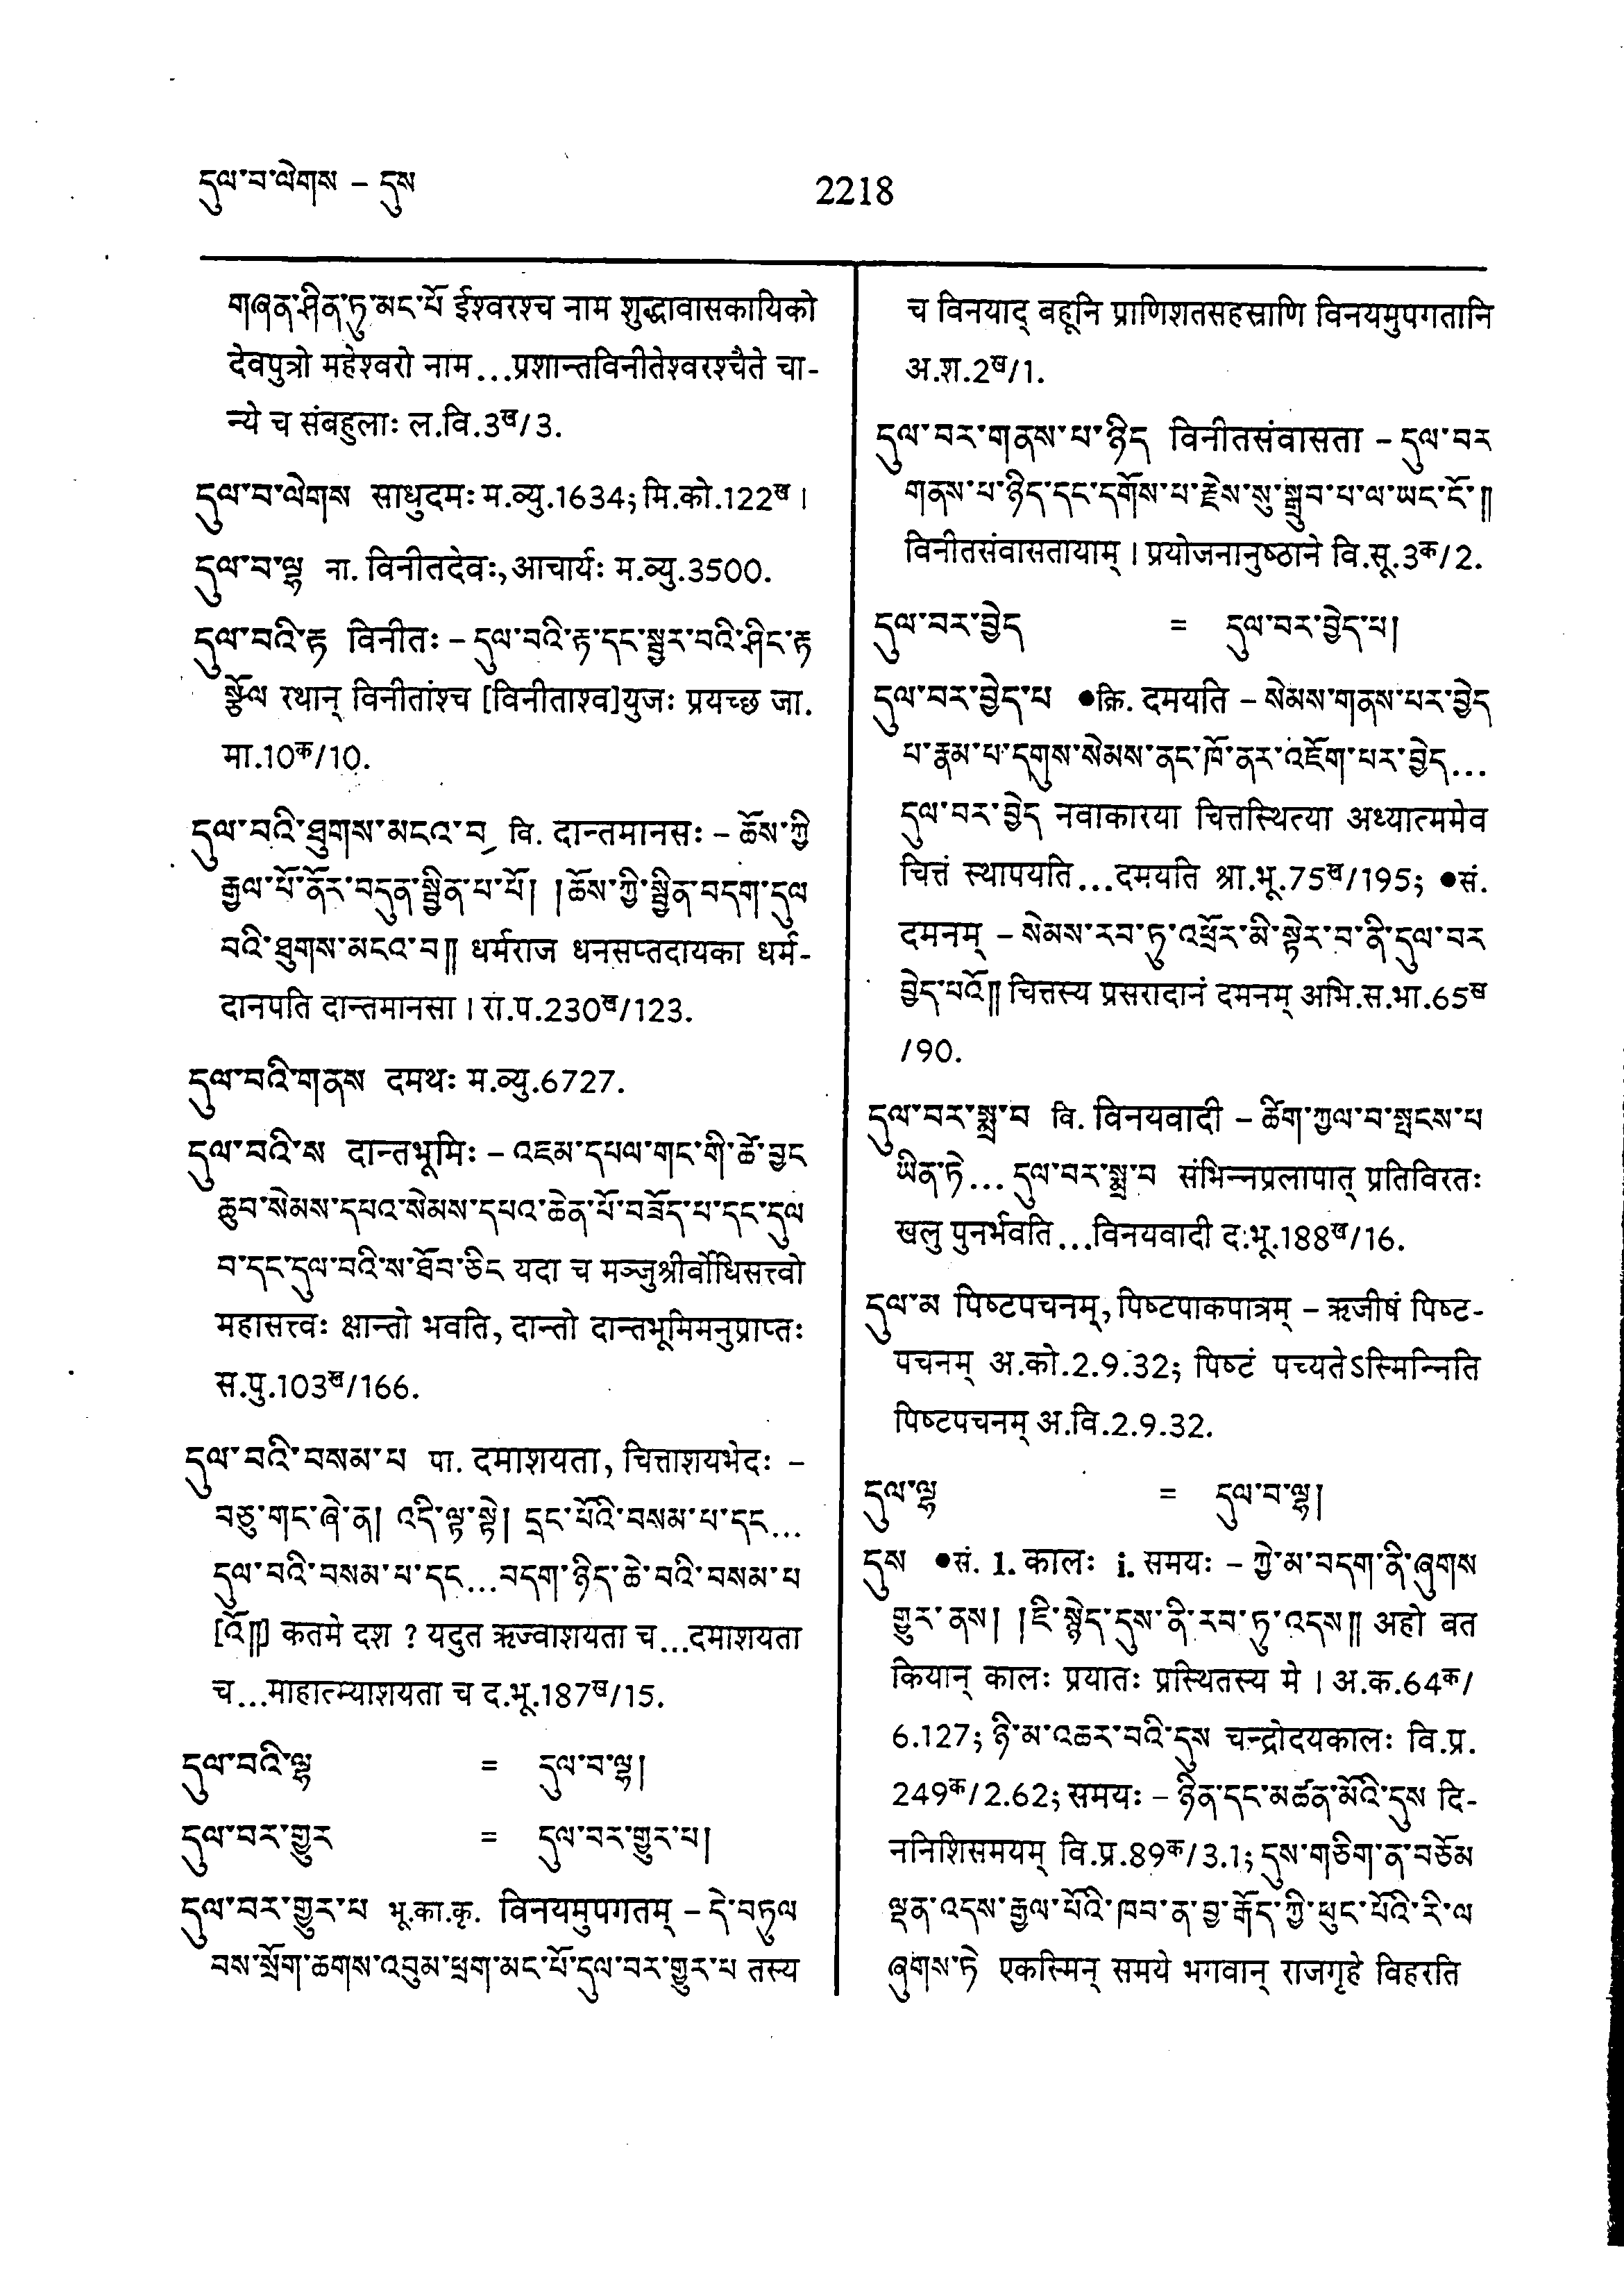 དུལ་བ་ལེགས – དུས
2218
གཞན་ཤིན་ཏུ་མང་པོ ईश्वरश्च नाम शुद्धावासकायिको
देवपुत्रो महेश्वरो नाम...प्रशान्तविनीतेश्वरश्चैते चा-
न्ये च संबहुलाः ल.वि.3ख/3.
དུལ་བ་ལེགས साधुदमः म.व्यु.1634; मि.को.122ख ।
དུལ་བ་ལྷ ना. विनीतदेवः, आचार्यः म.व्यु.3500.
དུལ་བའི་རྟ विनीतः – དུལ་བའི་རྟ་དང་སྦྱར་བའི་ཤིང་རྟ
སྩོལ रथान् विनीतांश्च [विनीताश्व]युजः प्रयच्छ जा.
मा.10क/10.
དུལ་བའི་ཐུགས་མངའ་བ वि. दान्तमानसः – ཆོས་ཀྱི
རྒྱལ་པོ་ནོར་བདུན་སྦྱིན་པ་པོ། །ཆོས་ཀྱི་སྦྱིན་བདག་དུལ
བའི་ཐུགས་མངའ་བ༎ धर्मराज धनसप्तदायका धर्म-
दानपति दान्तमानसा । रा.प.230ख/123.
དུལ་བའི་གནས दमथः म.व्यु.6727.
དུལ་བའི་ས दान्तभूमिः – འཇམ་དཔལ་གང་གི་ཚེ་བྱང
ཆུབ་སེམས་དཔའ་སེམས་དཔའ་ཆེན་པོ་བཟོད་པ་དང་དུལ
བ་དང་དུལ་བའི་ས་ཐོབ་ཅིང यदा च मञ्जुश्रीर्बोधिसत्त्वो
महासत्त्वः क्षान्तो भवति, दान्तो दान्तभूमिमनुप्राप्तः
स.पु.103ख/166.
དུལ་བའི་བསམ་པ पा. दमाशयता, चित्ताशयभेदः –
བཅུ་གང་ཞེ་ན། འདི་ལྟ་སྟེ། དྲང་པོའི་བསམ་པ་དང...
དུལ་བའི་བསམ་པ་དང...བདག་ཉིད་ཆེ་བའི་བསམ་པ
[འོ༎] कतमे दश ? यदुत ऋज्वाशयता च...दमाशयता
च...माहात्म्याशयता च द.भू.187ख/15.
དུལ་བའི་ལྷ = དུལ་བ་ལྷ།
དུལ་བར་གྱུར = དུལ་བར་གྱུར་པ།
དུལ་བར་གྱུར་པ भू.का.कृ. विनयमुपगतम् – དེ་བཏུལ
བས་སྲོག་ཆགས་འབུམ་ཕྲག་མང་པོ་དུལ་བར་གྱུར་པ तस्य
च विनयाद् बहूनि प्राणिशतसहस्राणि विनयमुपगतानि
अ.श.2ख/1.
དུལ་བར་གནས་པ་ཉིད विनीतसंवासता – དུལ་བར
གནས་པ་ཉིད་དང་དགོས་པ་རྗེས་སུ་སྒྲུབ་པ་ལ་ཡང་ངོ་༎
विनीतसंवासतायाम् । प्रयोजनानुष्ठाने वि.सू.3क/2.
དུལ་བར་བྱེད = དུལ་བར་བྱེད་པ།
དུལ་བར་བྱེད་པ ●क्रि. दमयति – སེམས་གནས་པར་བྱེད
པ་རྣམ་པ་དགུས་སེམས་ནང་ཁོ་ནར་འཇོག་པར་བྱེད...
དུལ་བར་བྱེད नवाकारया चित्तस्थित्या अध्यात्ममेव
चित्तं स्थापयति...दमयति श्रा.भू.75ख/195; ●सं.
दमनम् – སེམས་རབ་ཏུ་འཕྲོར་མི་སྟེར་བ་ནི་དུལ་བར
བྱེད་པའོ༎ चित्तस्य प्रसरादानं दमनम् अभि.स.भा.65ख
/90.
དུལ་བར་སྨྲ་བ वि. विनयवादी – ཚིག་ཀྱལ་བ་སྤངས་པ
ཡིན་ཏེ... དུལ་བར་སྨྲ་བ संभिन्नप्रलापात् प्रतिविरतः
खलु पुनर्भवति...विनयवादी द.भू.188ख/16.
དུལ་མ पिष्टपचनम्, पिष्टपाकपात्रम् – ऋजीषं पिष्ट-
पचनम् अ.को.2.9.32; पिष्टं पच्यतेऽस्मिन्निति
पिष्टपचनम् अ.वि.2.9.32.
དུལ་ལྷ = དུལ་བ་ལྷ།
དུས ●सं. 1. कालः i. समयः – ཀྱེ་མ་བདག་ནི་ཞུགས
གྱུར་ནས། །ཇི་སྙེད་དུས་ནི་རབ་ཏུ་འདས༎ अहो बत
कियान् कालः प्रयातः प्रस्थितस्य मे । अ.क.64क/
6.127; ཉི་མ་འཆར་བའི་དུས चन्द्रोदयकालः वि.प्र.
249क/2.62; समयः – ཉིན་དང་མཚན་མོའི་དུས दि-
ननिशिसमयम् वि.प्र.89क/3.1; དུས་གཅིག་ན་བཅོམ
ལྡན་འདས་རྒྱལ་པོའི་ཁབ་ན་བྱ་རྒོད་ཀྱི་ཕུང་པོའི་རི་ལ
ཞུགས་ཏེ एकस्मिन् समये भगवान् राजगृहे विहरति